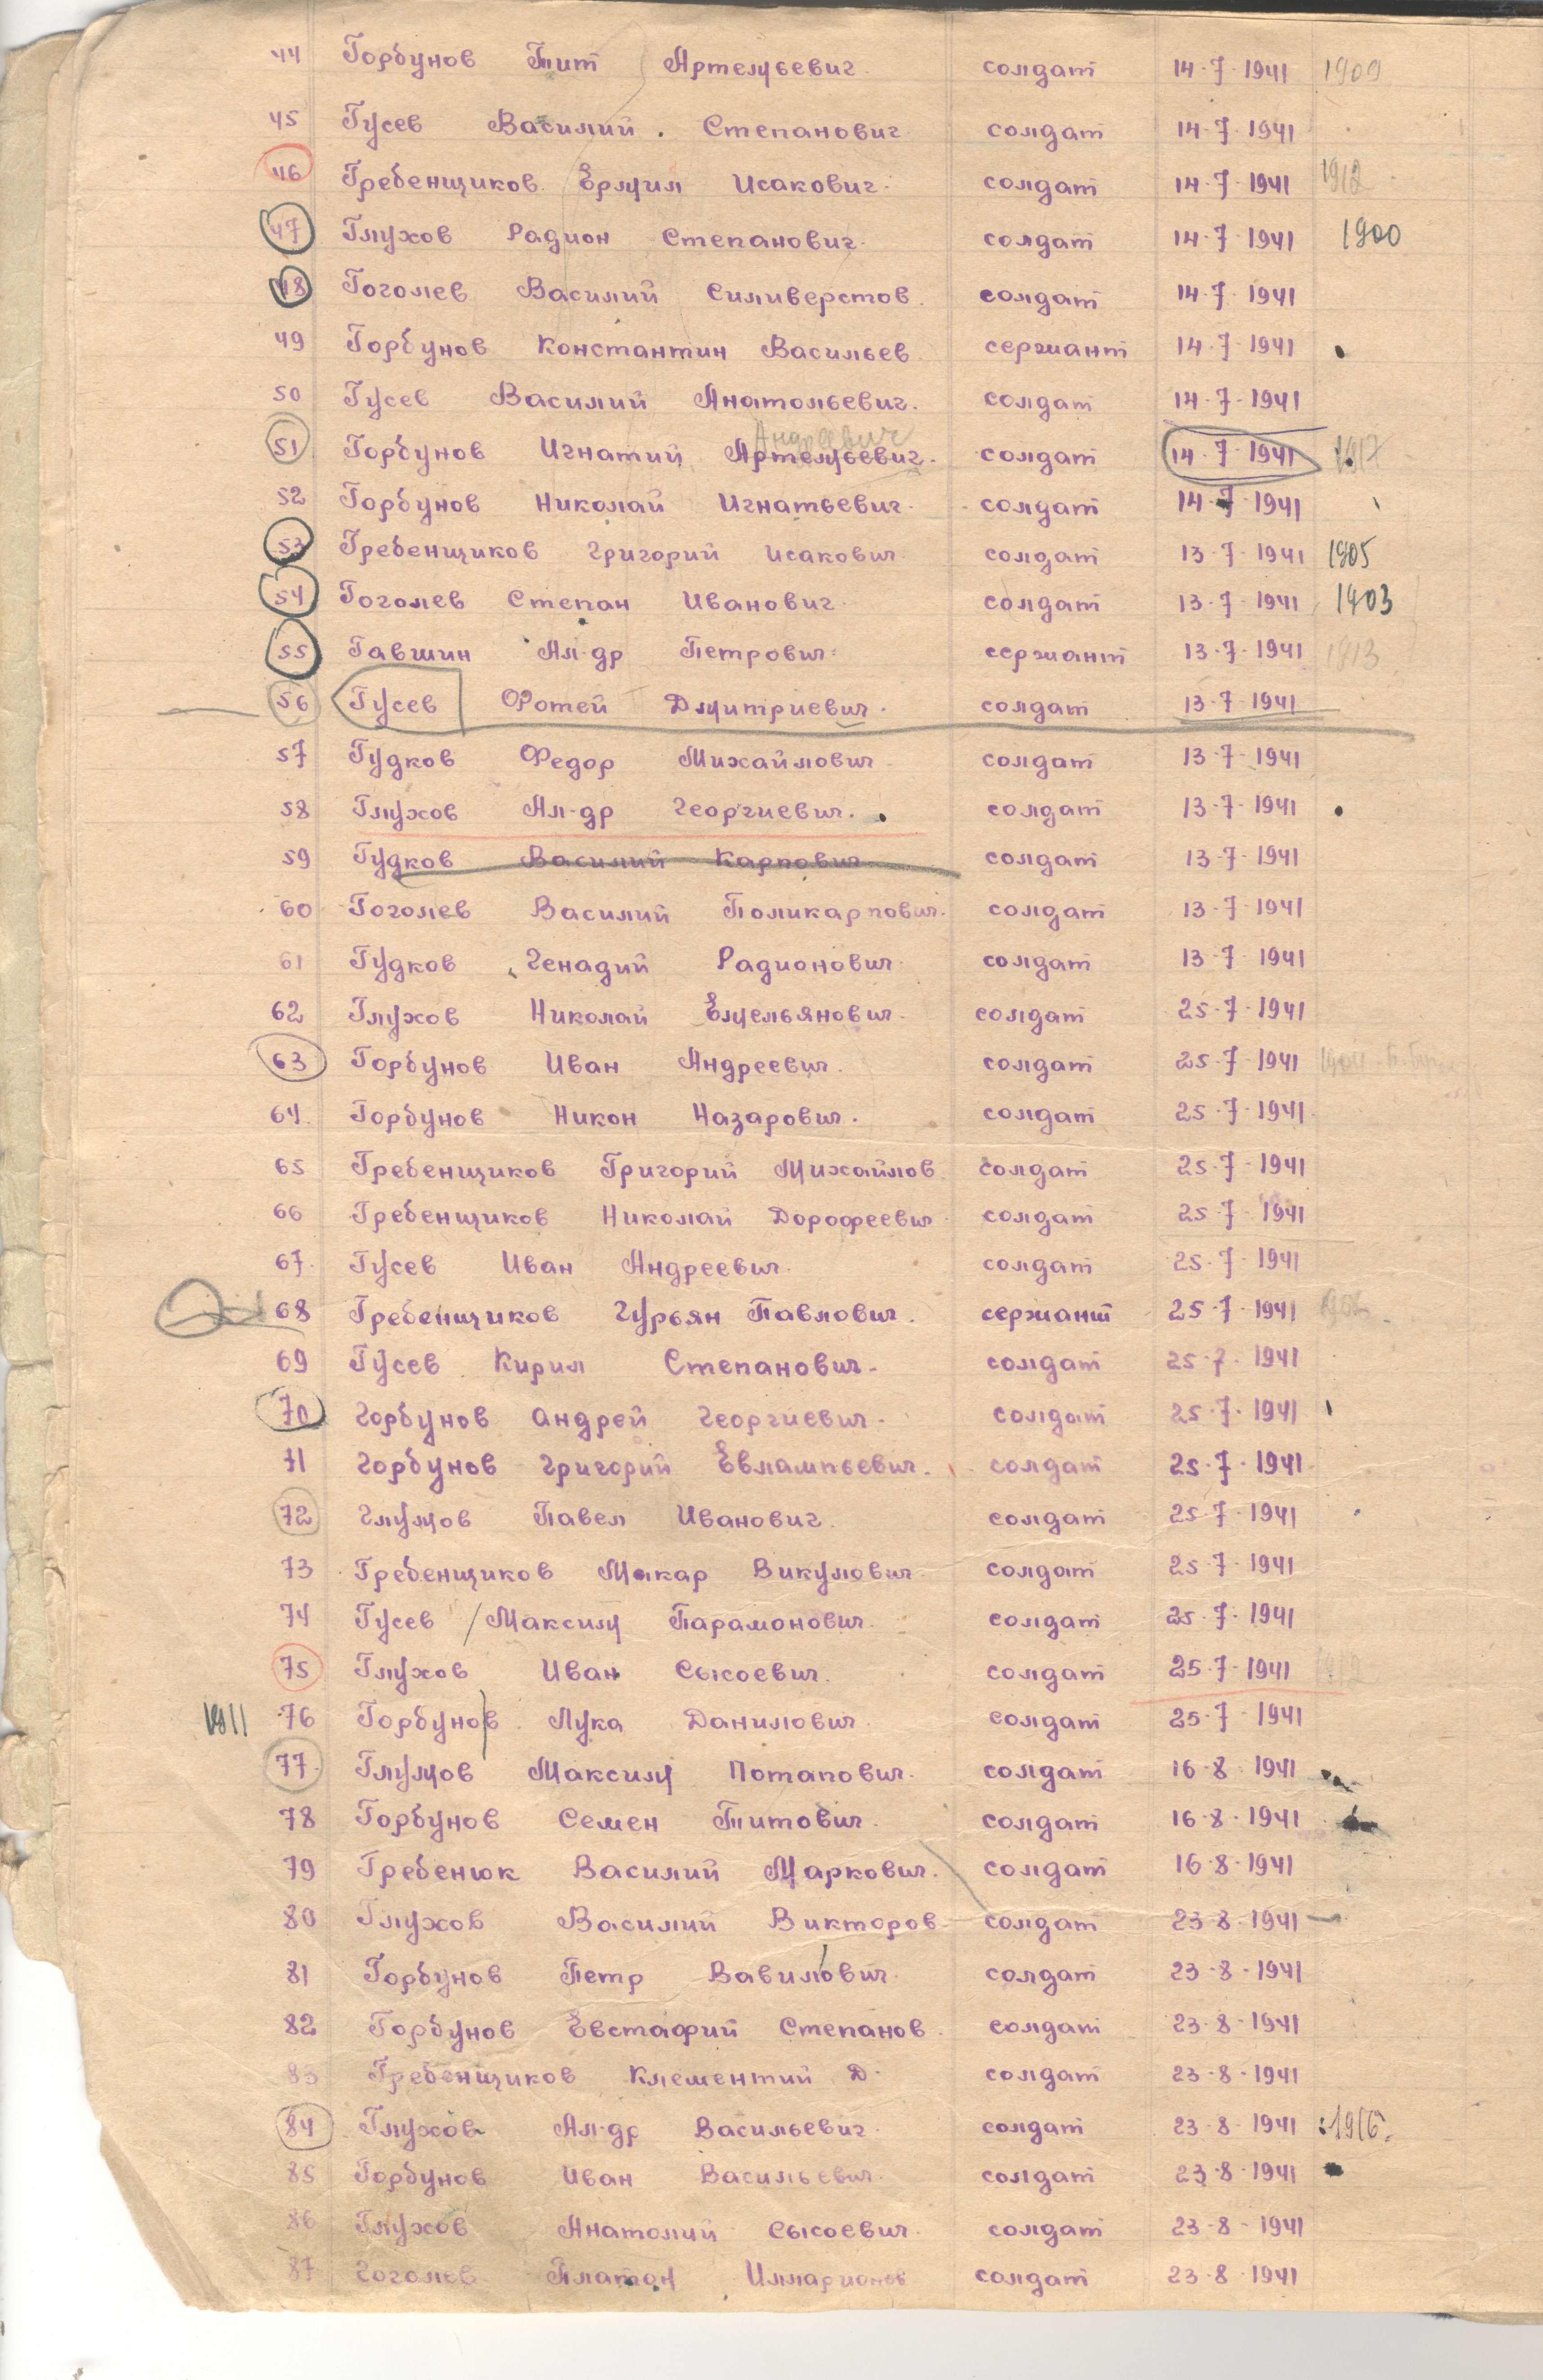 44 Горбунов Тит Артемьевич. солдат 14·7·1941 1909
45 Гусев Василий. Степанович солдат 14·7·1941
46 Гребенщиков Ермил Исакович. солдат 14·7·1941 1912
47 Глухов Радион Степанович. солдат 14·7·1941 1900
48 Гоголев Василий Силиверстов. солдат 14·7·1941
49 Горбунов Константин Васильев сержант 14·7·1941
50 Гусев Василий Анатольевич. солдат 14·7·1941
Андреевич
51 Горбунов Игнатий Артемьевич. солдат 14·7·1941 1917
52 Горбунов Николай Игнатьевич. солдат 14·7·1941
53 Гребенщиков Григорий Исакович солдат 13·7·1941 1905
54 Гоголев Степан Иванович солдат 13·7·1941 1903
55 Гавшин Ал-др Петрович. сержант 13·7·1941 1913
56 Гусев Фотей Дмитриевич. солдат 13·7·1941
57 Гудков Федор Михайлович солдат 13·7·1941
58 Глухов Ал-др Георгиевич. солдат 13·7·1941
59 Гудков Василий Карпович солдат 13·7·1941
60 Гоголев Василий Поликарпович. солдат 13·7·1941
61 Гудков Генадий Радионович солдат 13·7·1941
62 Глухов Николай Емельянович. солдат 25·7·1941
63 Горбунов Иван Андреевич. солдат 25·7·1941
64. Горбунов Никон Назарович. солдат 25·7·1941
65 Гребенщиков Григорий Михайлов солдат 25·7·1941
66 Гребенщиков Николай Дорофеевич солдат 25·7·1941
67. Гусев Иван Андреевич. солдат 25·7·1941
68 Гребенщиков Гурьян Павлович. сержант 25·7·1941
69 Гусев Кирил Степанович. солдат 25·7·1941
70 Горбунов Андрей Георгиевич. солдат 25·7·1941
71 Горбунов Григорий Евлампьевич. солдат 25·7·1941
72 Глумов Павел Иванович. солдат 25·7·1941
73 Гребенщиков Макар Викулович солдат 25·7·1941
74 Гусев / Максим Парамонович. солдат 25·7·1941
75 Глухов Иван Сысоевич. солдат 25·7·1941
1911 76 Горбунов Лука Данилович. солдат 25·7·1941
77. Глумов Максим Потапович. солдат 16·8·1941
78 Горбунов Семен Титович. солдат 16·8·1941
79 Гребенюк Василий Маркович. солдат 16·8·1941
80 Глухов Василий Викторов солдат 23·8·1941
81 Горбунов Петр Вавилович. солдат 23·8·1941
82 Горбунов Евстафий Степанов. солдат 23·8·1941
83 Гребенщиков Клементий Д. солдат 23·8·1941
84 Глухов Ал-др Васильевич. солдат 23·8·1941 1916.
85 Горбунов Иван Васильевич. солдат 23·8·1941
86 Глухов Анатолий Сысоевич. солдат 23·8·1941
87 Гоголев Платон Илларионов солдат 23·8·1941